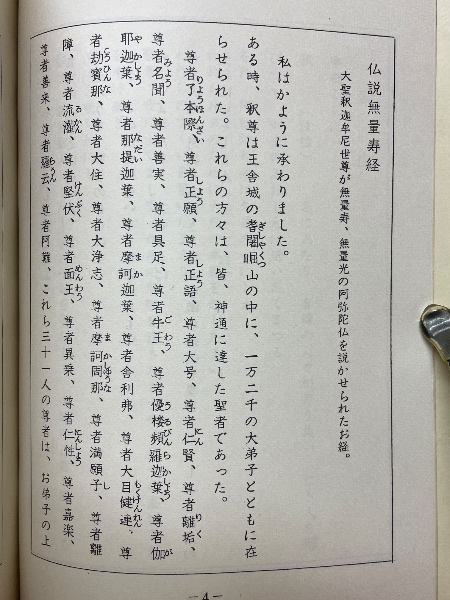 仏説無量寿経
大聖釈迦牟尼世尊が無量寿、無量光の阿弥陀仏を説かせられたお経。
私はかように承わりました。
ある時、釈尊は王舎城の耆闍崛山の中に、一万二千の大弟子とともに在
らせられた。これらの方々は、皆、神通に達した聖者であった。
尊者了本際、尊者正願、尊者正語、尊者大号、尊者仁賢、尊者離垢、
尊者名聞、尊者善実、尊者具足、尊者牛王、尊者優楼頻羅迦葉、尊者伽
耶迦葉、尊者那提迦葉、尊者摩訶迦葉、尊者舎利弗、尊者大目犍連、尊
者劫賓那、尊者大住、尊者大浄志、尊者摩訶周那、尊者満願子、尊者離
障、尊者流灌、尊者堅伏、尊者面王、尊者異乗、尊者仁性、尊者嘉楽、
尊者善来、尊者羅云、尊者阿難、これら三十一人の尊者は、お弟子の上
—4—